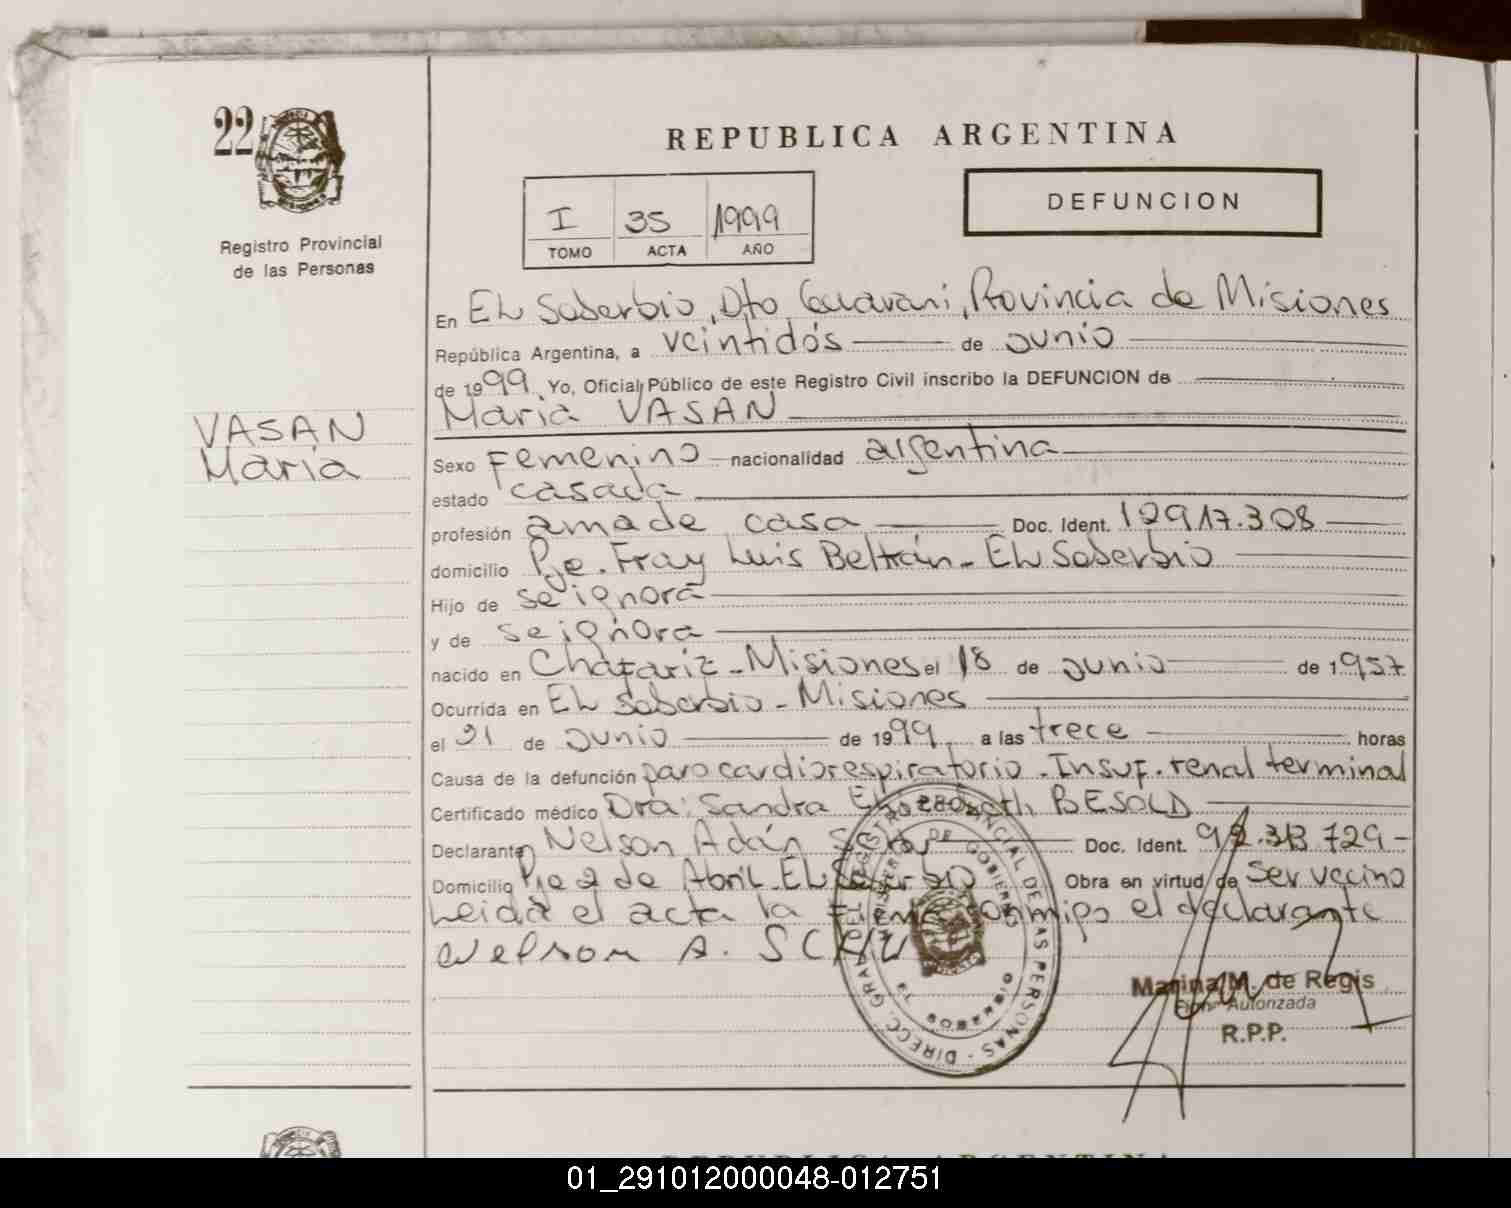 22
Registro Provincial
de las Personas
REPUBLICA ARGENTINA
I 35 1999
TOMO ACTA AÑO
DEFUNCION
VASAN
María
En EL Soberbio, Dto Guaraní, Provincia de Misiones
República Argentina, a veintidós de Junio
de 1999. Yo, Oficial Público de este Registro Civil inscribo la DEFUNCION de
María VASAN
Sexo Femenino nacionalidad argentina
estado casada
profesión ama de casa Doc. Ident. 12917.308
domicilio Bº. Fray Luis Beltrán - EL Soberbio
Hijo de se ignora
y de se ignora
nacido en Chafariz - Misiones el 18 de Junio de 1957
Ocurrida en EL Soberbio - Misiones
el 21 de Junio de 1999 a las trece horas
Causa de la defunción paro cardiorespiratorio - Insuf. renal terminal
Certificado médico Dra: Sandra BESOLD
Declarante Nelson Adán Doc. Ident. 92.313.729-
Domicilio 2 de Abril - EL Soberbio Obra en virtud de ser vecino
Leida el acta la firma conmigo el declarante
Nelson A. SCHU
DIRECC. GRAL. DEL REGISTRO PROVINCIAL DE LAS PERSONAS
MINISTERIO DE GOBIERNO
MISIONES
Marina M. de Regis
Firma Autorizada
R.P.P.
REPUBLICA ARGENTINA
01_291012000048-012751